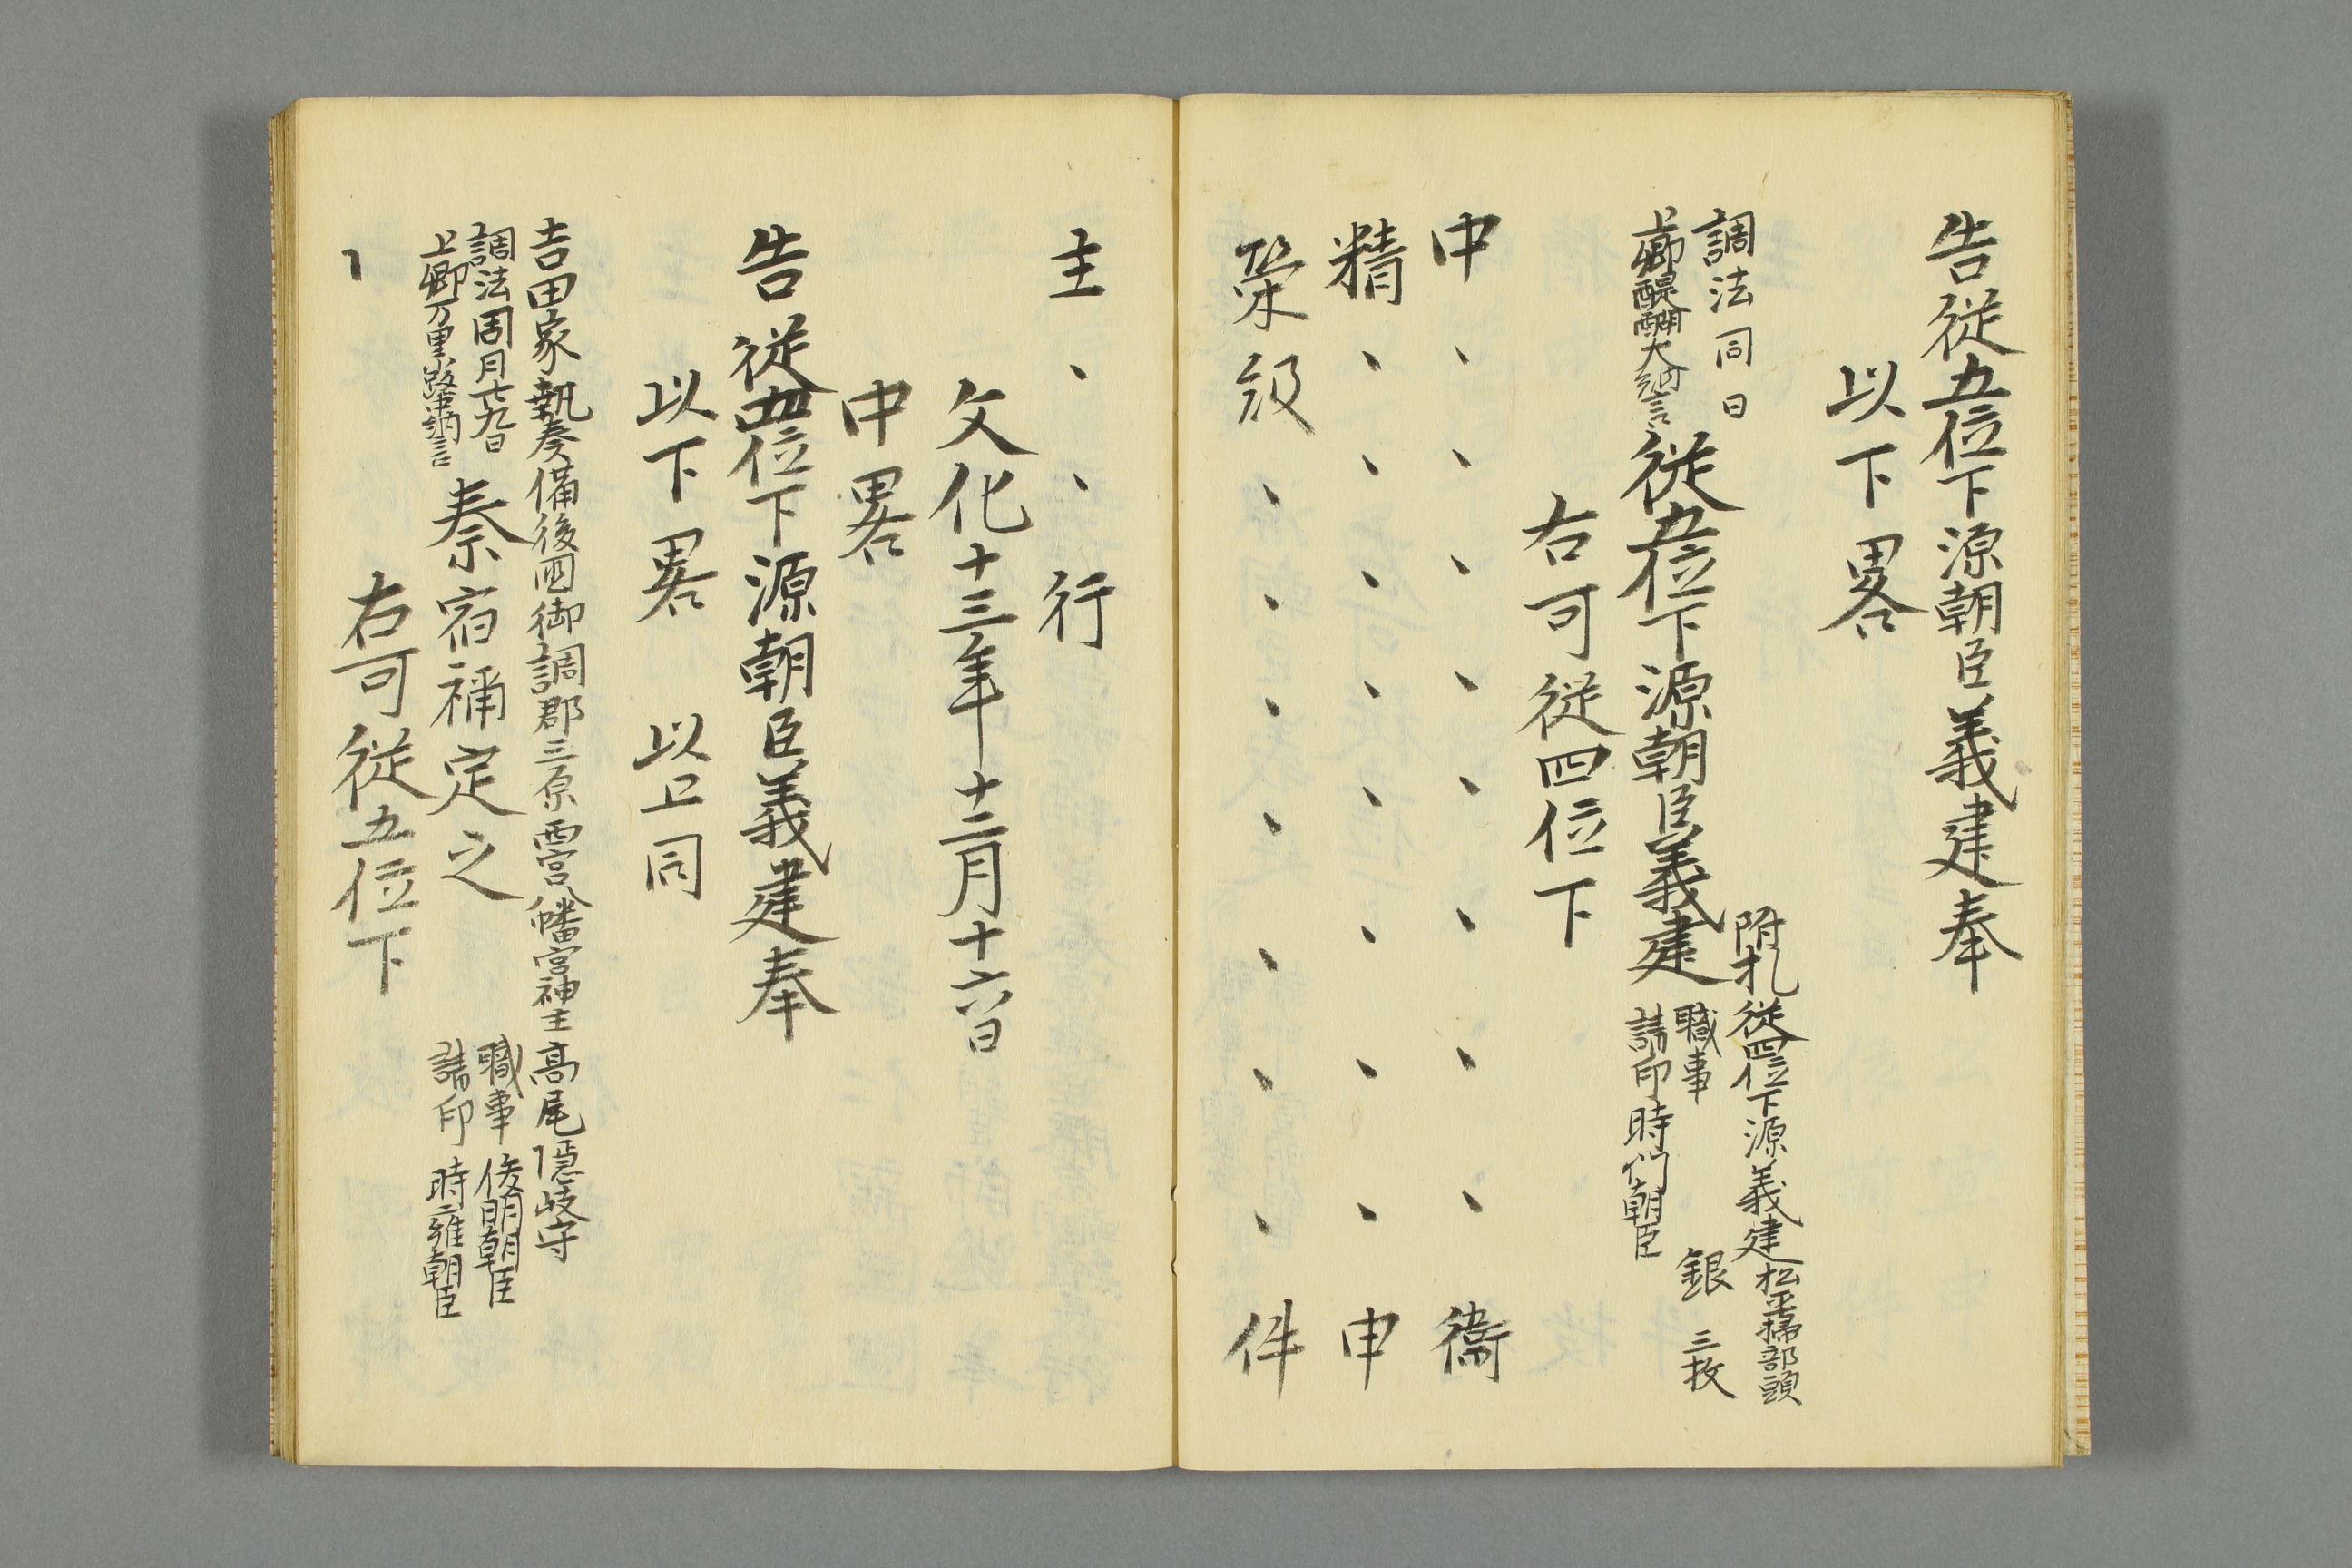 告従五位下源朝臣義建奉
以下畧
附札従四位下源義建松平掃部頭
調法同日
職事
銀三枚
上卿醍醐大納言
従五位下源朝臣義建
請印時們朝臣
右可従四位下
中、、、、、、、、衞
精、、、、、、、、申
栄級、、、、、、、件
主、、行
文化十三年十二月十六日
中畧
告従四位下源朝臣義建奉
以下畧 以上同
吉田家執奏備後国御調郡三原西宮八幡宮神主高尾隠岐守
調法同月十九日
職事俊明朝臣
上卿万里小路中納言
秦宿祢定之
請印時雍朝臣
右可従五位下